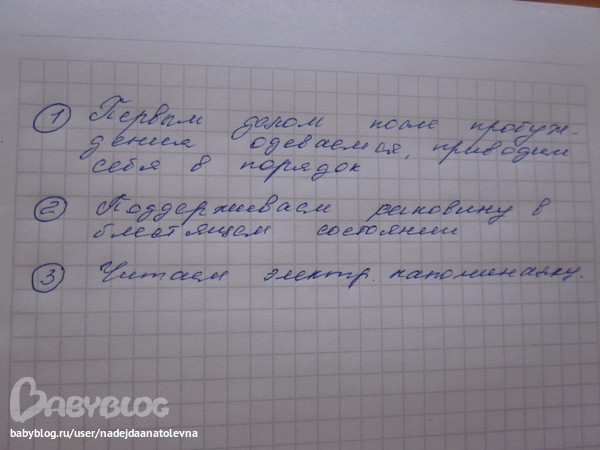 1 Первым делом после пробуж-
дения одеваемся, приводим
себя в порядок
2 Поддерживаем раковину в
блестящем состоянии
3 Читаем электр. напоминалку.
BABYBLOG
babyblog.ru/user/nadejdaanatolevna